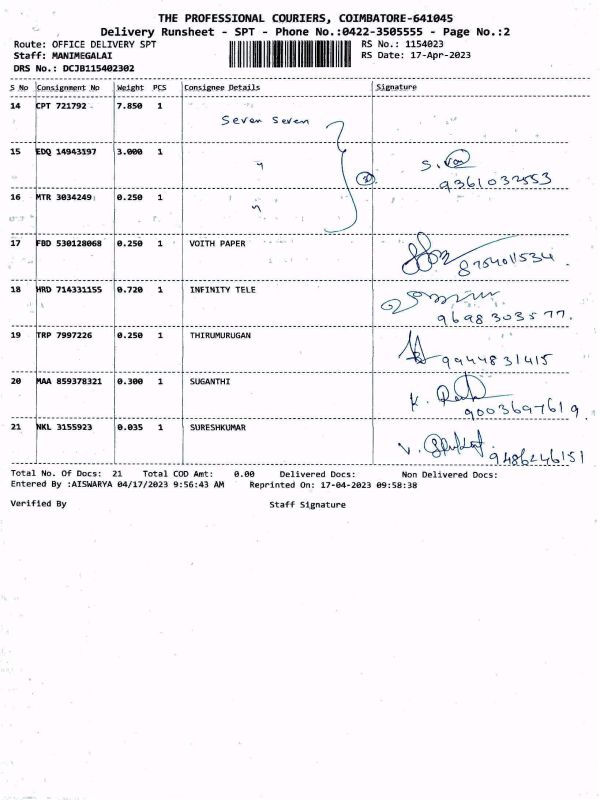 THE PROFESSIONAL COURIERS, COIMBATORE-641045
Delivery Runsheet - SPT - Phone No.:0422-3505555 - Page No.:2
Route: OFFICE DELIVERY SPT RS No.: 1154023
Staff: MANIMEGALAI RS Date: 17-Apr-2023
DRS No.: DCJB115402302
S No Consignment No Weight PCS Consignee Details Signature
14 CPT 721792 7.850 1 Seven Seven
15 EDQ 14943197 3.000 1 〃
9361032553
16 MTR 3034249 0.250 1 〃
17 FBD 530128068 0.250 1 VOITH PAPER
8754011534
18 HRD 714331155 0.720 1 INFINITY TELE
9698303577.
19 TRP 7997226 0.250 1 THIRUMURUGAN 9944831415
20 MAA 859378321 0.300 1 SUGANTHI
9003697619.
21 NKL 3155923 0.035 1 SURESHKUMAR
9486246151
Total No. Of Docs: 21 Total COD Amt: 0.00 Delivered Docs: Non Delivered Docs:
Entered By :AISWARYA 04/17/2023 9:56:43 AM Reprinted On: 17-04-2023 09:58:38
Verified By Staff Signature